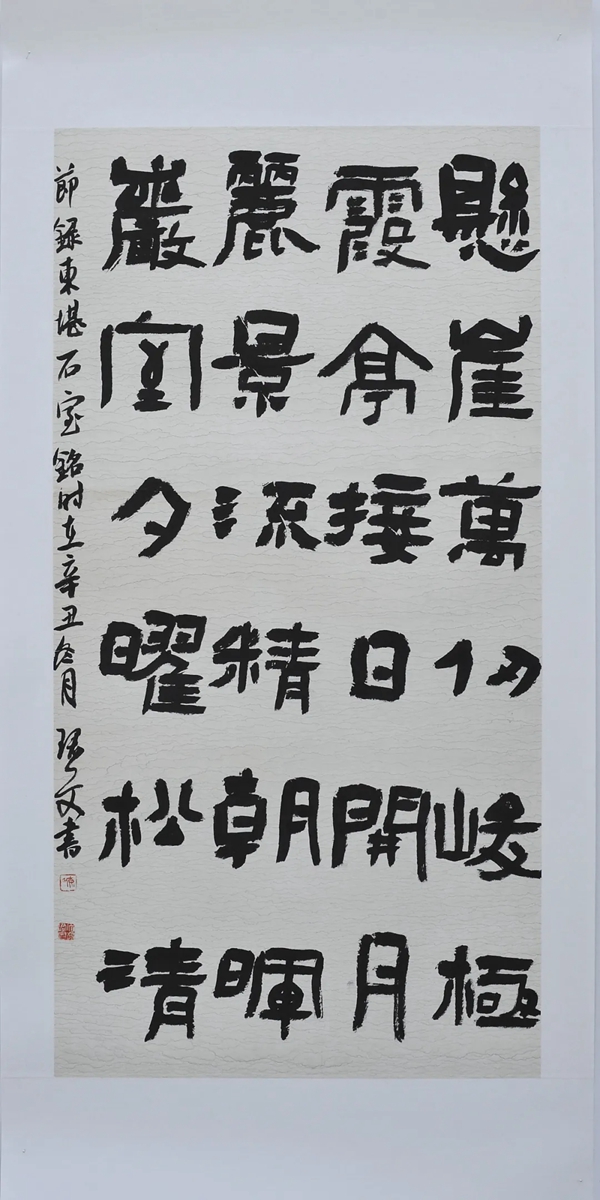 懸崖萬仞峻極
霞亭接日開月
麗景流精朝暉
巖室夕曜松清
節録東堪石室銘時在辛丑冬月 文書